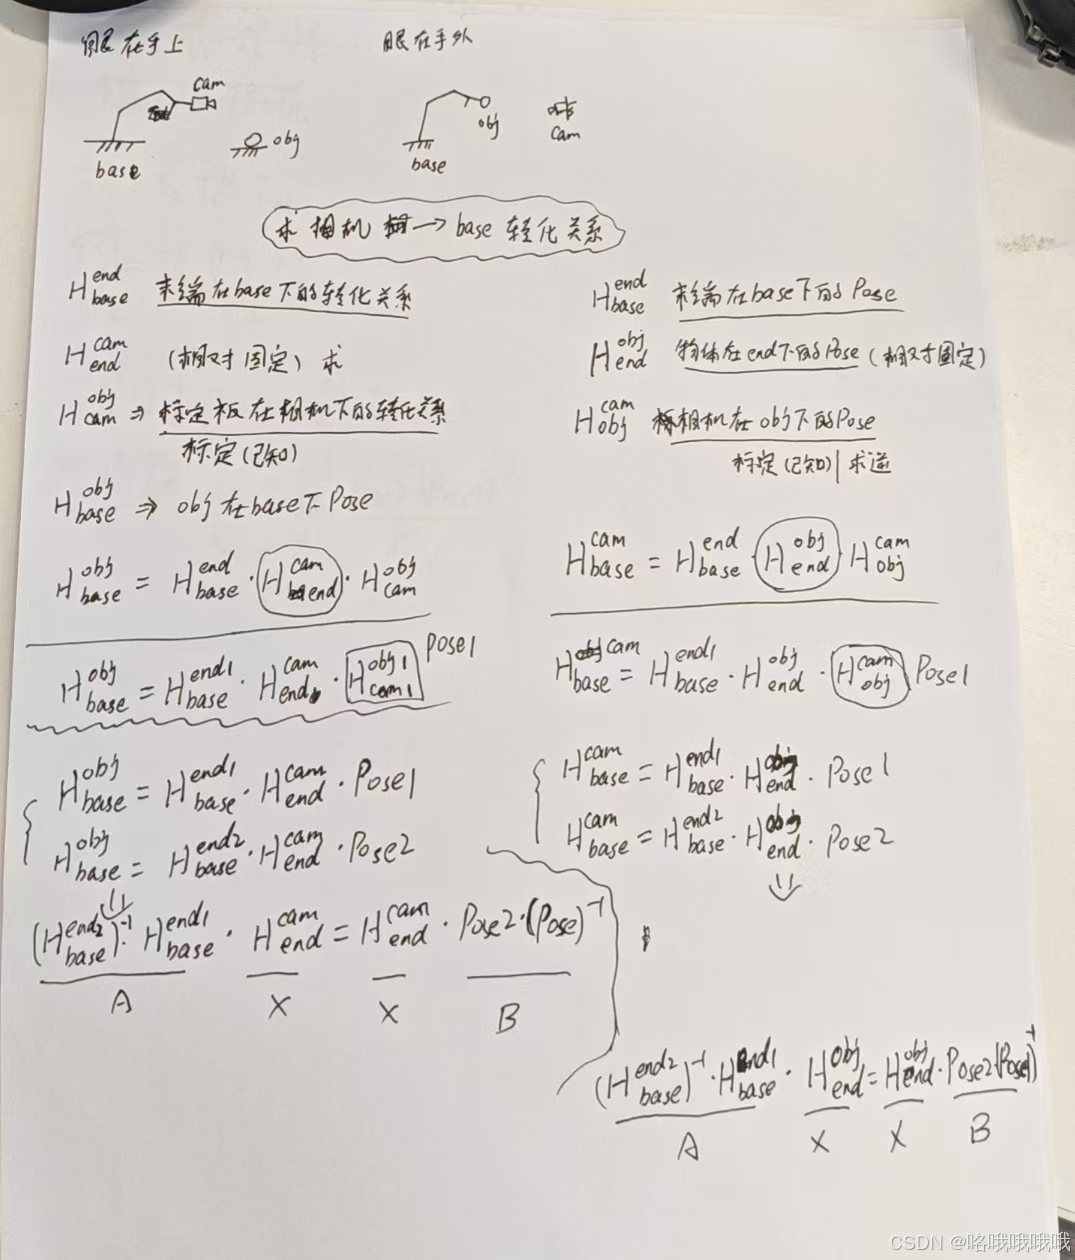 眼在手上
cam
base
obj
眼在手外
obj
cam
base
求相机→base 转化关系
H_base^end 末端在base下的转化关系
H_end^cam (相对固定) 求
H_cam^obj ⇒ 标定板在相机下的转化关系
标定(已知)
H_base^obj ⇒ obj在base下Pose
H_base^obj = H_base^end · H_end^cam · H_cam^obj
H_base^obj = H_base^end1 · H_end^cam · H_cam1^obj1 Pose1
H_base^obj = H_base^end1 · H_end^cam · Pose1
H_base^obj = H_base^end2 · H_end^cam · Pose2
(H_base^end2)^-1 · H_base^end1 · H_end^cam = H_end^cam · Pose2·(Pose)^-1
A X X B
H_base^end 末端在base下的Pose
H_end^obj 物体在end下的Pose (相对固定)
H_obj^cam 相机在obj下的Pose
标定(已知)|求逆
H_base^cam = H_base^end · H_end^obj H_obj^cam
H_base^cam = H_base^end1 · H_end^obj · H_obj^cam Pose1
H_base^cam = H_base^end1 · H_end^obj · Pose1
H_base^cam = H_base^end2 · H_end^obj · Pose2
(H_base^end2)^-1 · H_base^end1 · H_end^obj = H_end^obj · Pose2(Pose1)^-1
A X X B
CSDN @咯哦哦哦哦